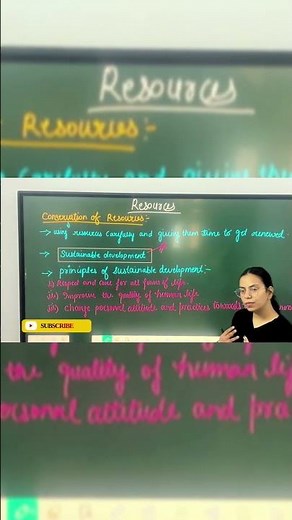 Resources
Resources:-
carefully and giving the
Resources
Conservation of Resources:-
→ using resources carefully and giving them time to get renewed.
→ Sustainable development
→ principles of sustainable development:-
i) Respect and care for all forms of life.
ii) Improve the quality of human life
iii) Change personal attitude and practices towards
SUBSCRIBE
the quality of human lif
personal attitude and pra